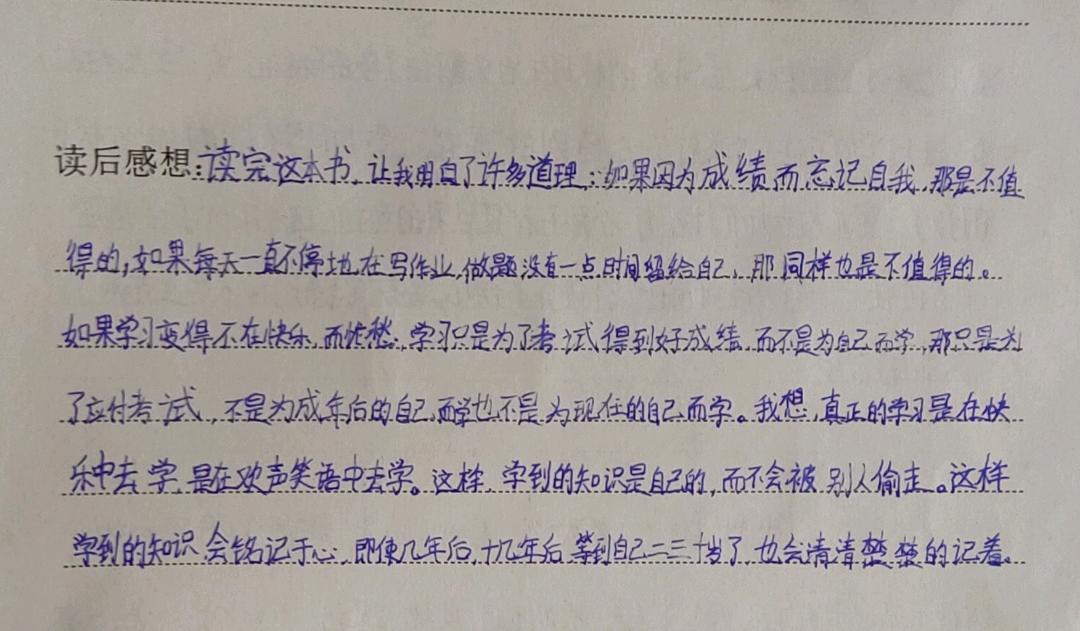 读后感想:读完这本书,让我明白了许多道理:如果因为成绩而忘记自我,那是不值
得的,如果每天一直不停地在写作业,做题没有一点时间留给自己,那同样也是不值得的。
如果学习变得不在快乐,而忧愁,学习只是为了考试得到好成绩,而不是为自己而学,那只是为
了应付考试,不是为成年后的自己而学也不是为现在的自己而学。我想,真正的学习是在快
乐中去学,是在欢声笑语中去学。这样,学到的知识是自己的,而不会被别人偷走。这样
学到的知识会铭记于心,即使几年后,十几年后,等到自己二三十岁了,也会清清楚楚的记着。